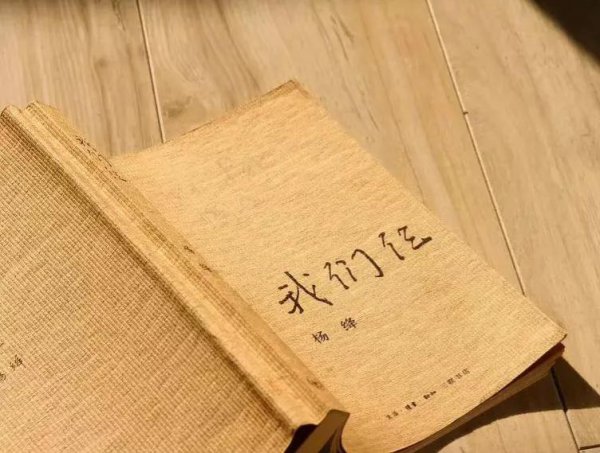 我们仨
杨绛
生活·读书·新知 三联书店
杨绛